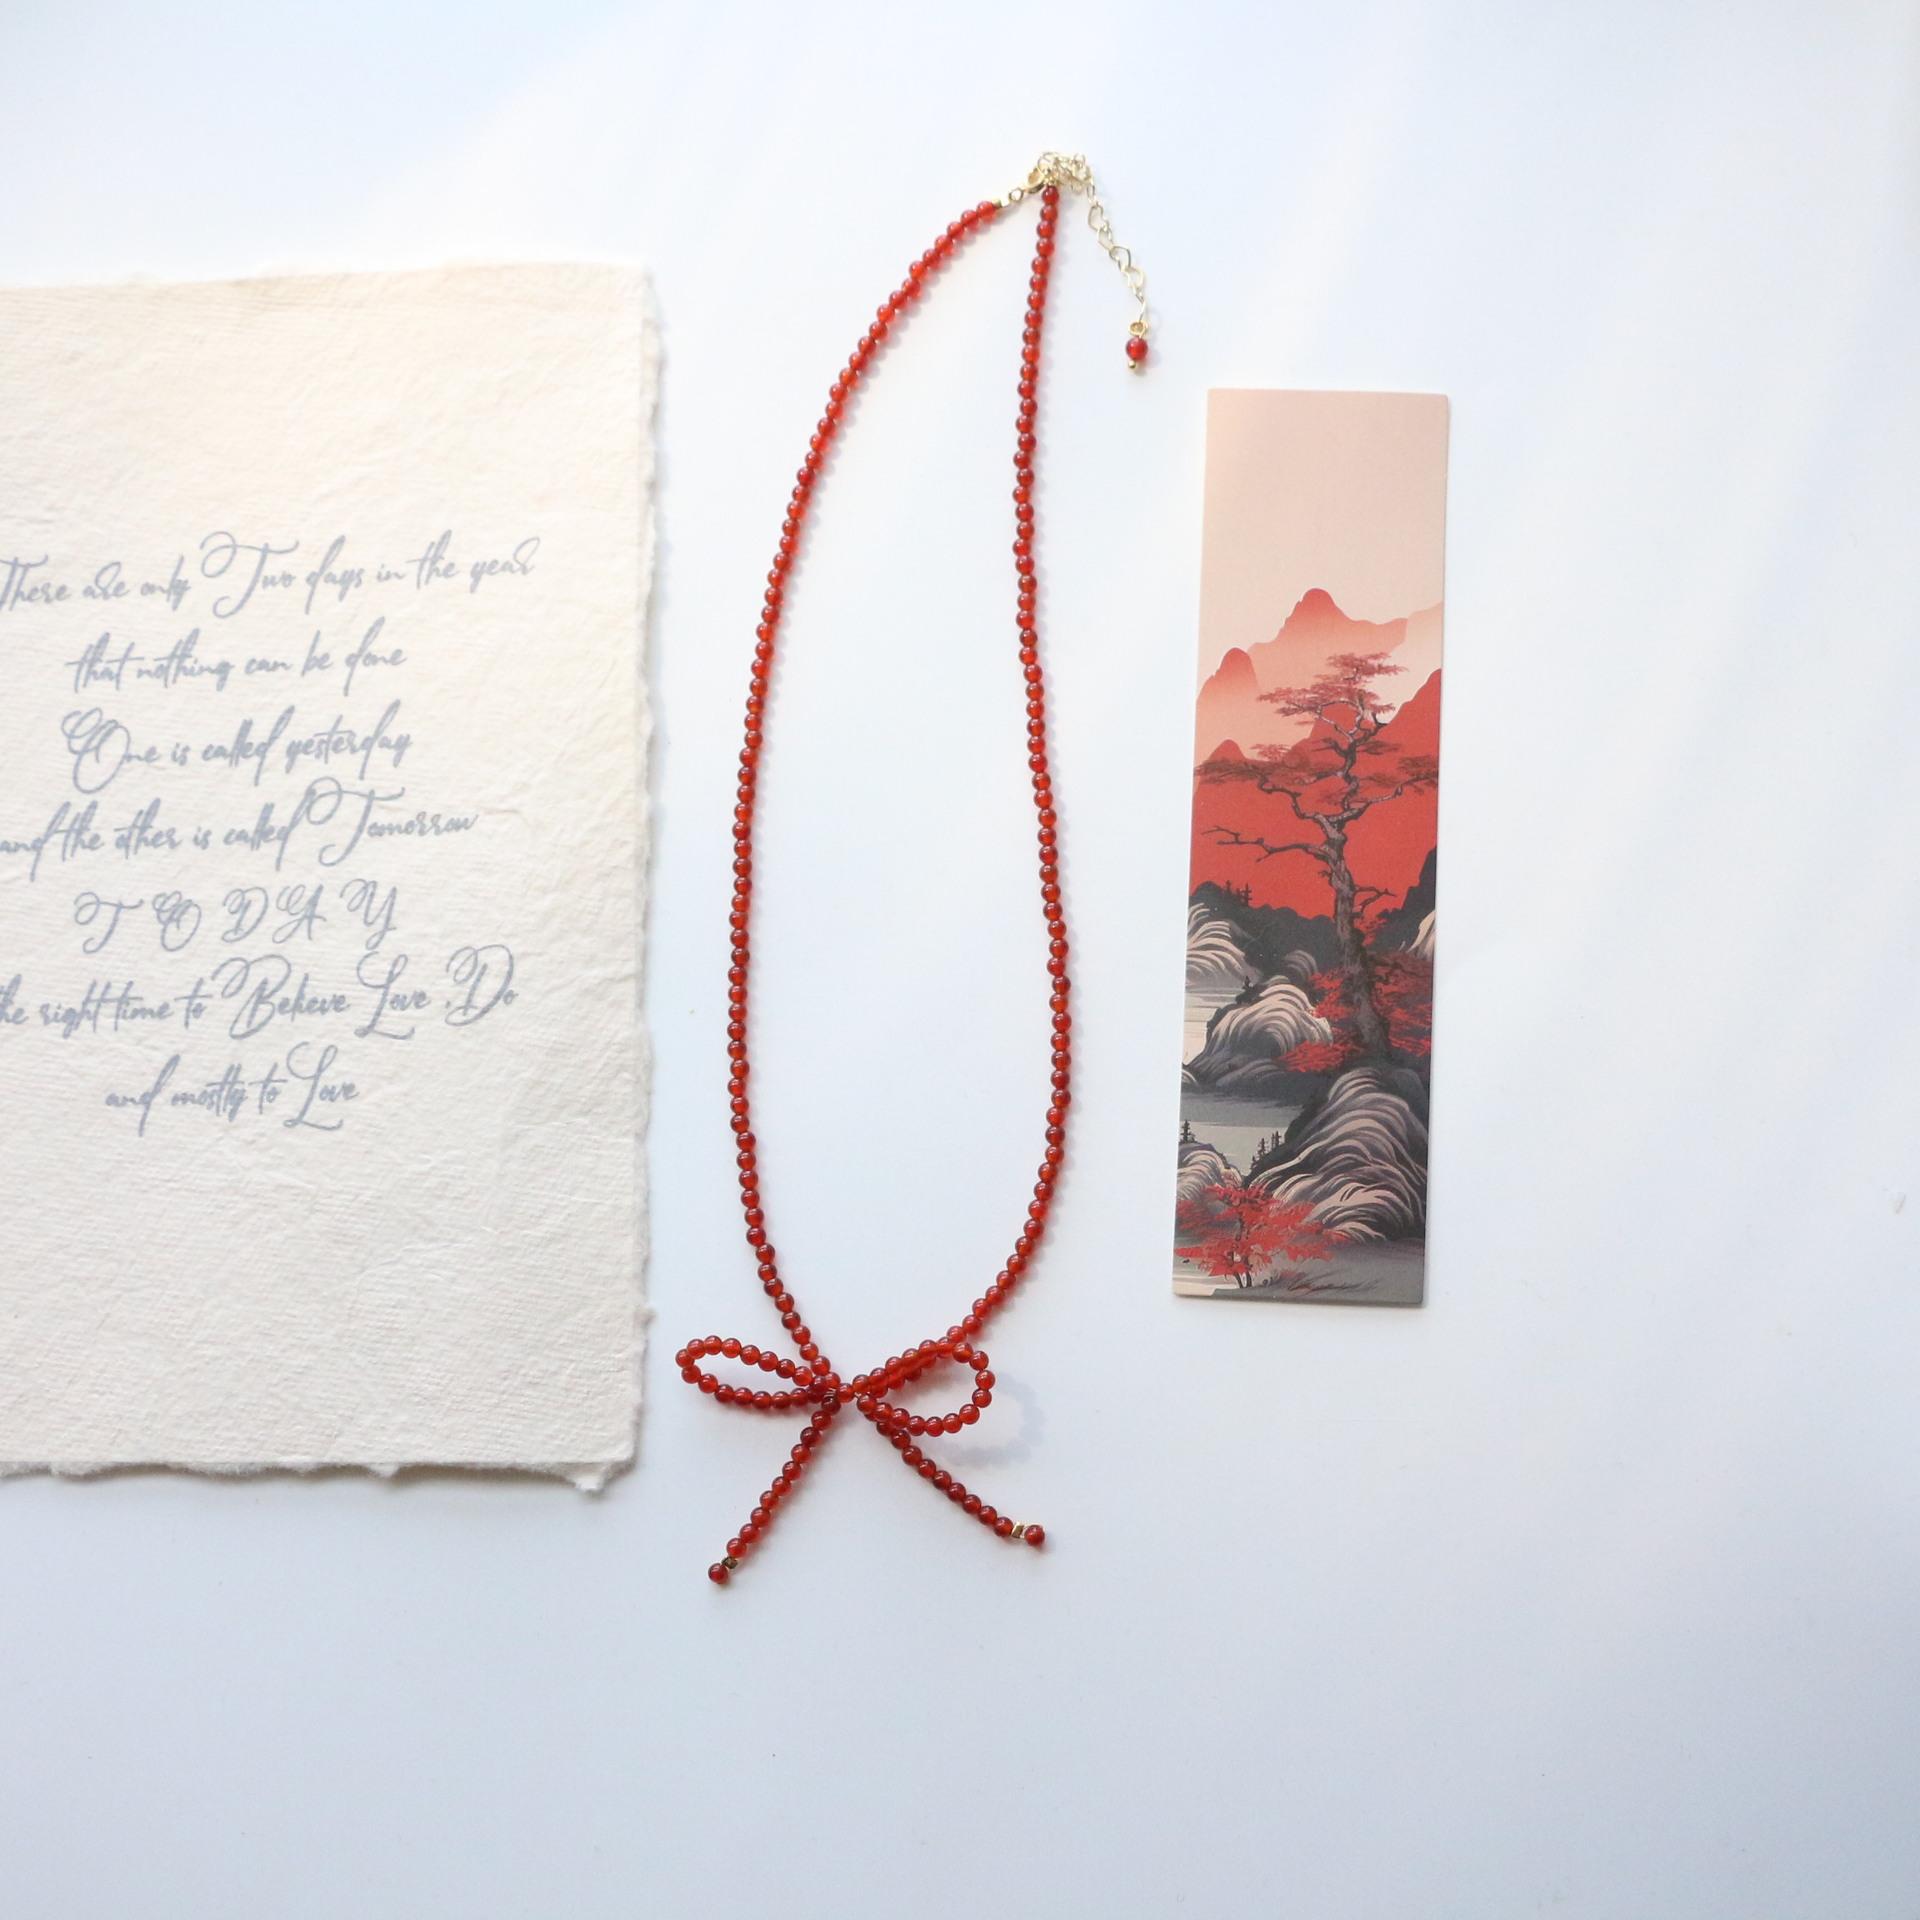 There are only Two days in the year
that nothing can be done
One is called yesterday
and the other is called Tomorrow
T O D A Y
the right time to Believe Love , Do
and mostly to Love